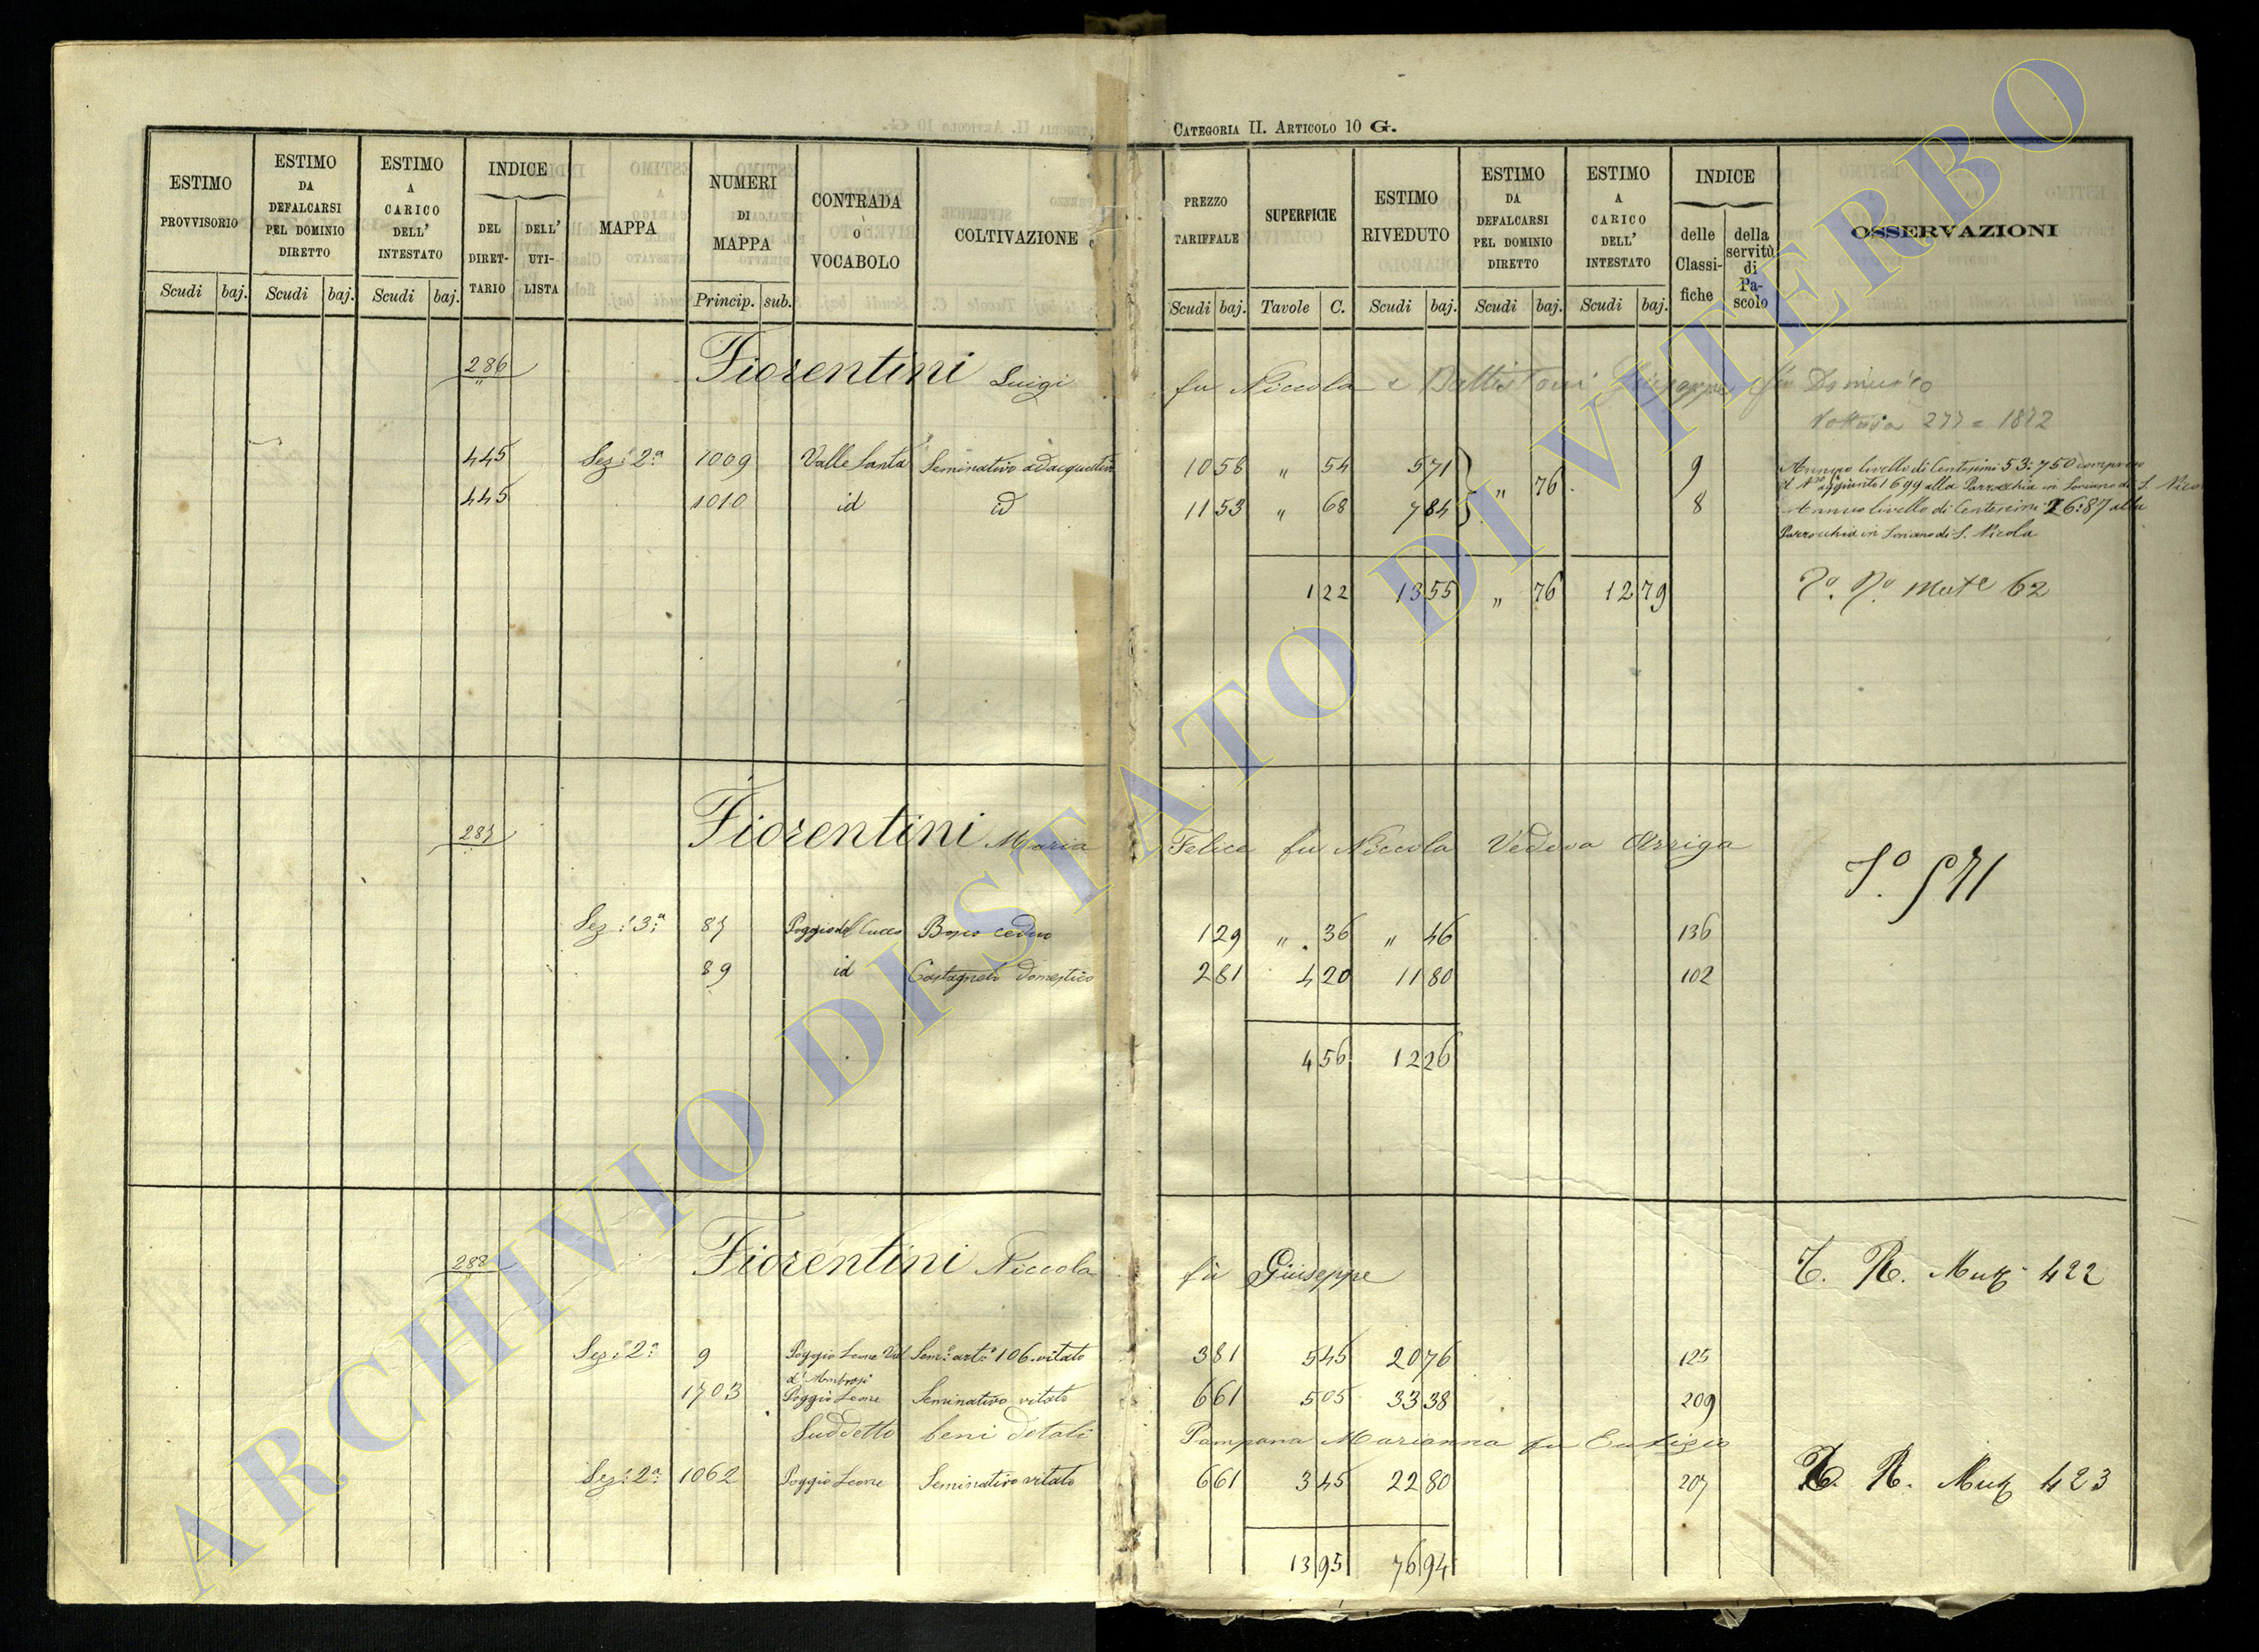 CATEGORIA II. ARTICOLO 10 G.
ESTIMO PROVVISORIO Scudi baj.
ESTIMO DA DEFALCARSI PEL DOMINIO DIRETTO Scudi baj.
ESTIMO A CARICO DELL' INTESTATO Scudi baj.
INDICE DEL DIRETTARIO DELL' UTILISTA
MAPPA
NUMERI DI MAPPA Princip. sub.
CONTRADA o VOCABOLO
COLTIVAZIONE
PREZZO TARIFFALE Scudi baj.
SUPERFICIE Tavole C.
ESTIMO RIVEDUTO Scudi baj.
ESTIMO DA DEFALCARSI PEL DOMINIO DIRETTO Scudi baj.
ESTIMO A CARICO DELL' INTESTATO Scudi baj.
INDICE delle Classifiche della servitù di Pascolo
OSSERVAZIONI
286 Fiorentini Luigi fu Niccola e Battistoni Giuseppe fu Domenico
Voltura 277 = 1872
445 Sez: 2a 1009 Valle Santa Seminativo adacquativo 10 56 " 54 5 71 " 76 9 Annuo livello di Centesimi 53:750 compreso
il No aggiunto 1699 alla Parrocchia in Soriano di S. Nico
445 1010 id id 11 53 " 68 7 84 8 Annuo livello di Centesimi 26:87 alla
Parrocchia in Soriano di S. Nicola
1 22 13 55 " 76 12 79 62
287 Fiorentini Maria Felice fu Niccola Vedova Arriga
Sez: 3a 87 Poggio del Cucco Bosco ceduo 1 29 " 36 " 46 136
89 id Castagneto domestico 2 81 4 20 11 80 102
4 56 12 26
288 Fiorentini Niccola fu Giuseppe T. R. 422
Sez: 2a 9 Poggio Leone Val Sem: art: 106 vitato 3 81 5 45 20 76 125
d'Ambrosi
1703 Poggio Leone Seminativo vitato 6 61 5 05 33 38 209
Suddetto beni dotali Pampana Marianna fu Eutizio
Sez: 2a 1062 Poggio Leone Seminativo vitato 6 61 3 45 22 80 207 R. 423
13 95 76 94
ARCHIVIO DI STATO DI VITERBO